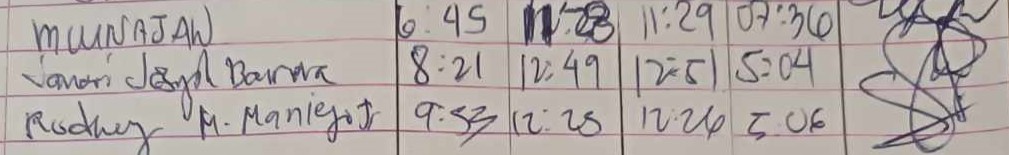 MUNAJAN 6:45 11:28 11:29 07:36
Jomari Boyd Barrera 8:21 12:49 12:51 5:04
Rodney M. Maniego Jr 9:53 12:25 12:26 5:06